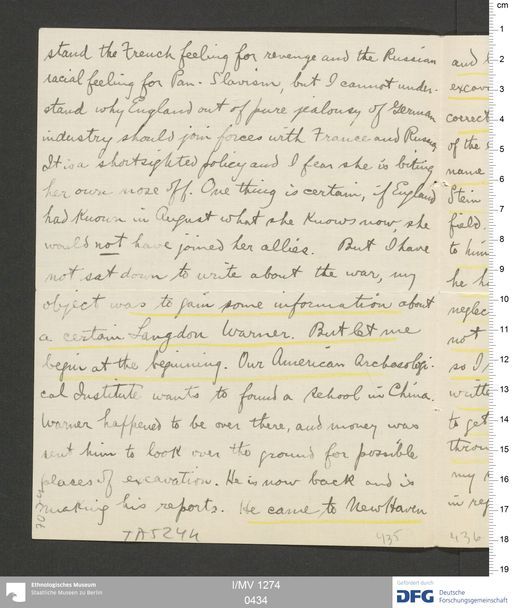 stand the French feeling for revenge and the Russian
racial feeling for Pan-Slavism, but I cannot under-
stand why England out of pure jealousy of German
industry should join forces with France and Russia
It is a shortsighted policy and I fear she is biting
her own nose off. One thing is certain, if England
had known in August what she knows now, she
would not have joined her allies. But I have
not sat down to write about the war, my
object was to gain some information about
a certain Langdon Warner. But let me
begin at the beginning. Our American Archaeologi-
cal Institute wants to found a school in China.
Warner happened to be over there, and money was
sent him to look over the ground for possible
places of excavation. He is now back and is
making his reports. He came to New Haven
7A5244
435
and
excav
correct
of the
name
Stein
field.
to him
he h
neglec
not
so I
writte
to get
throu
my
in reg
436
cm
1
2
3
4
5
6
7
8
9
10
11
12
13
14
15
16
17
18
19
Ethnologisches Museum
Staatliche Museen zu Berlin
I/MV 1274
0434
Gefördert durch
DFG Deutsche
Forschungsgemeinschaft